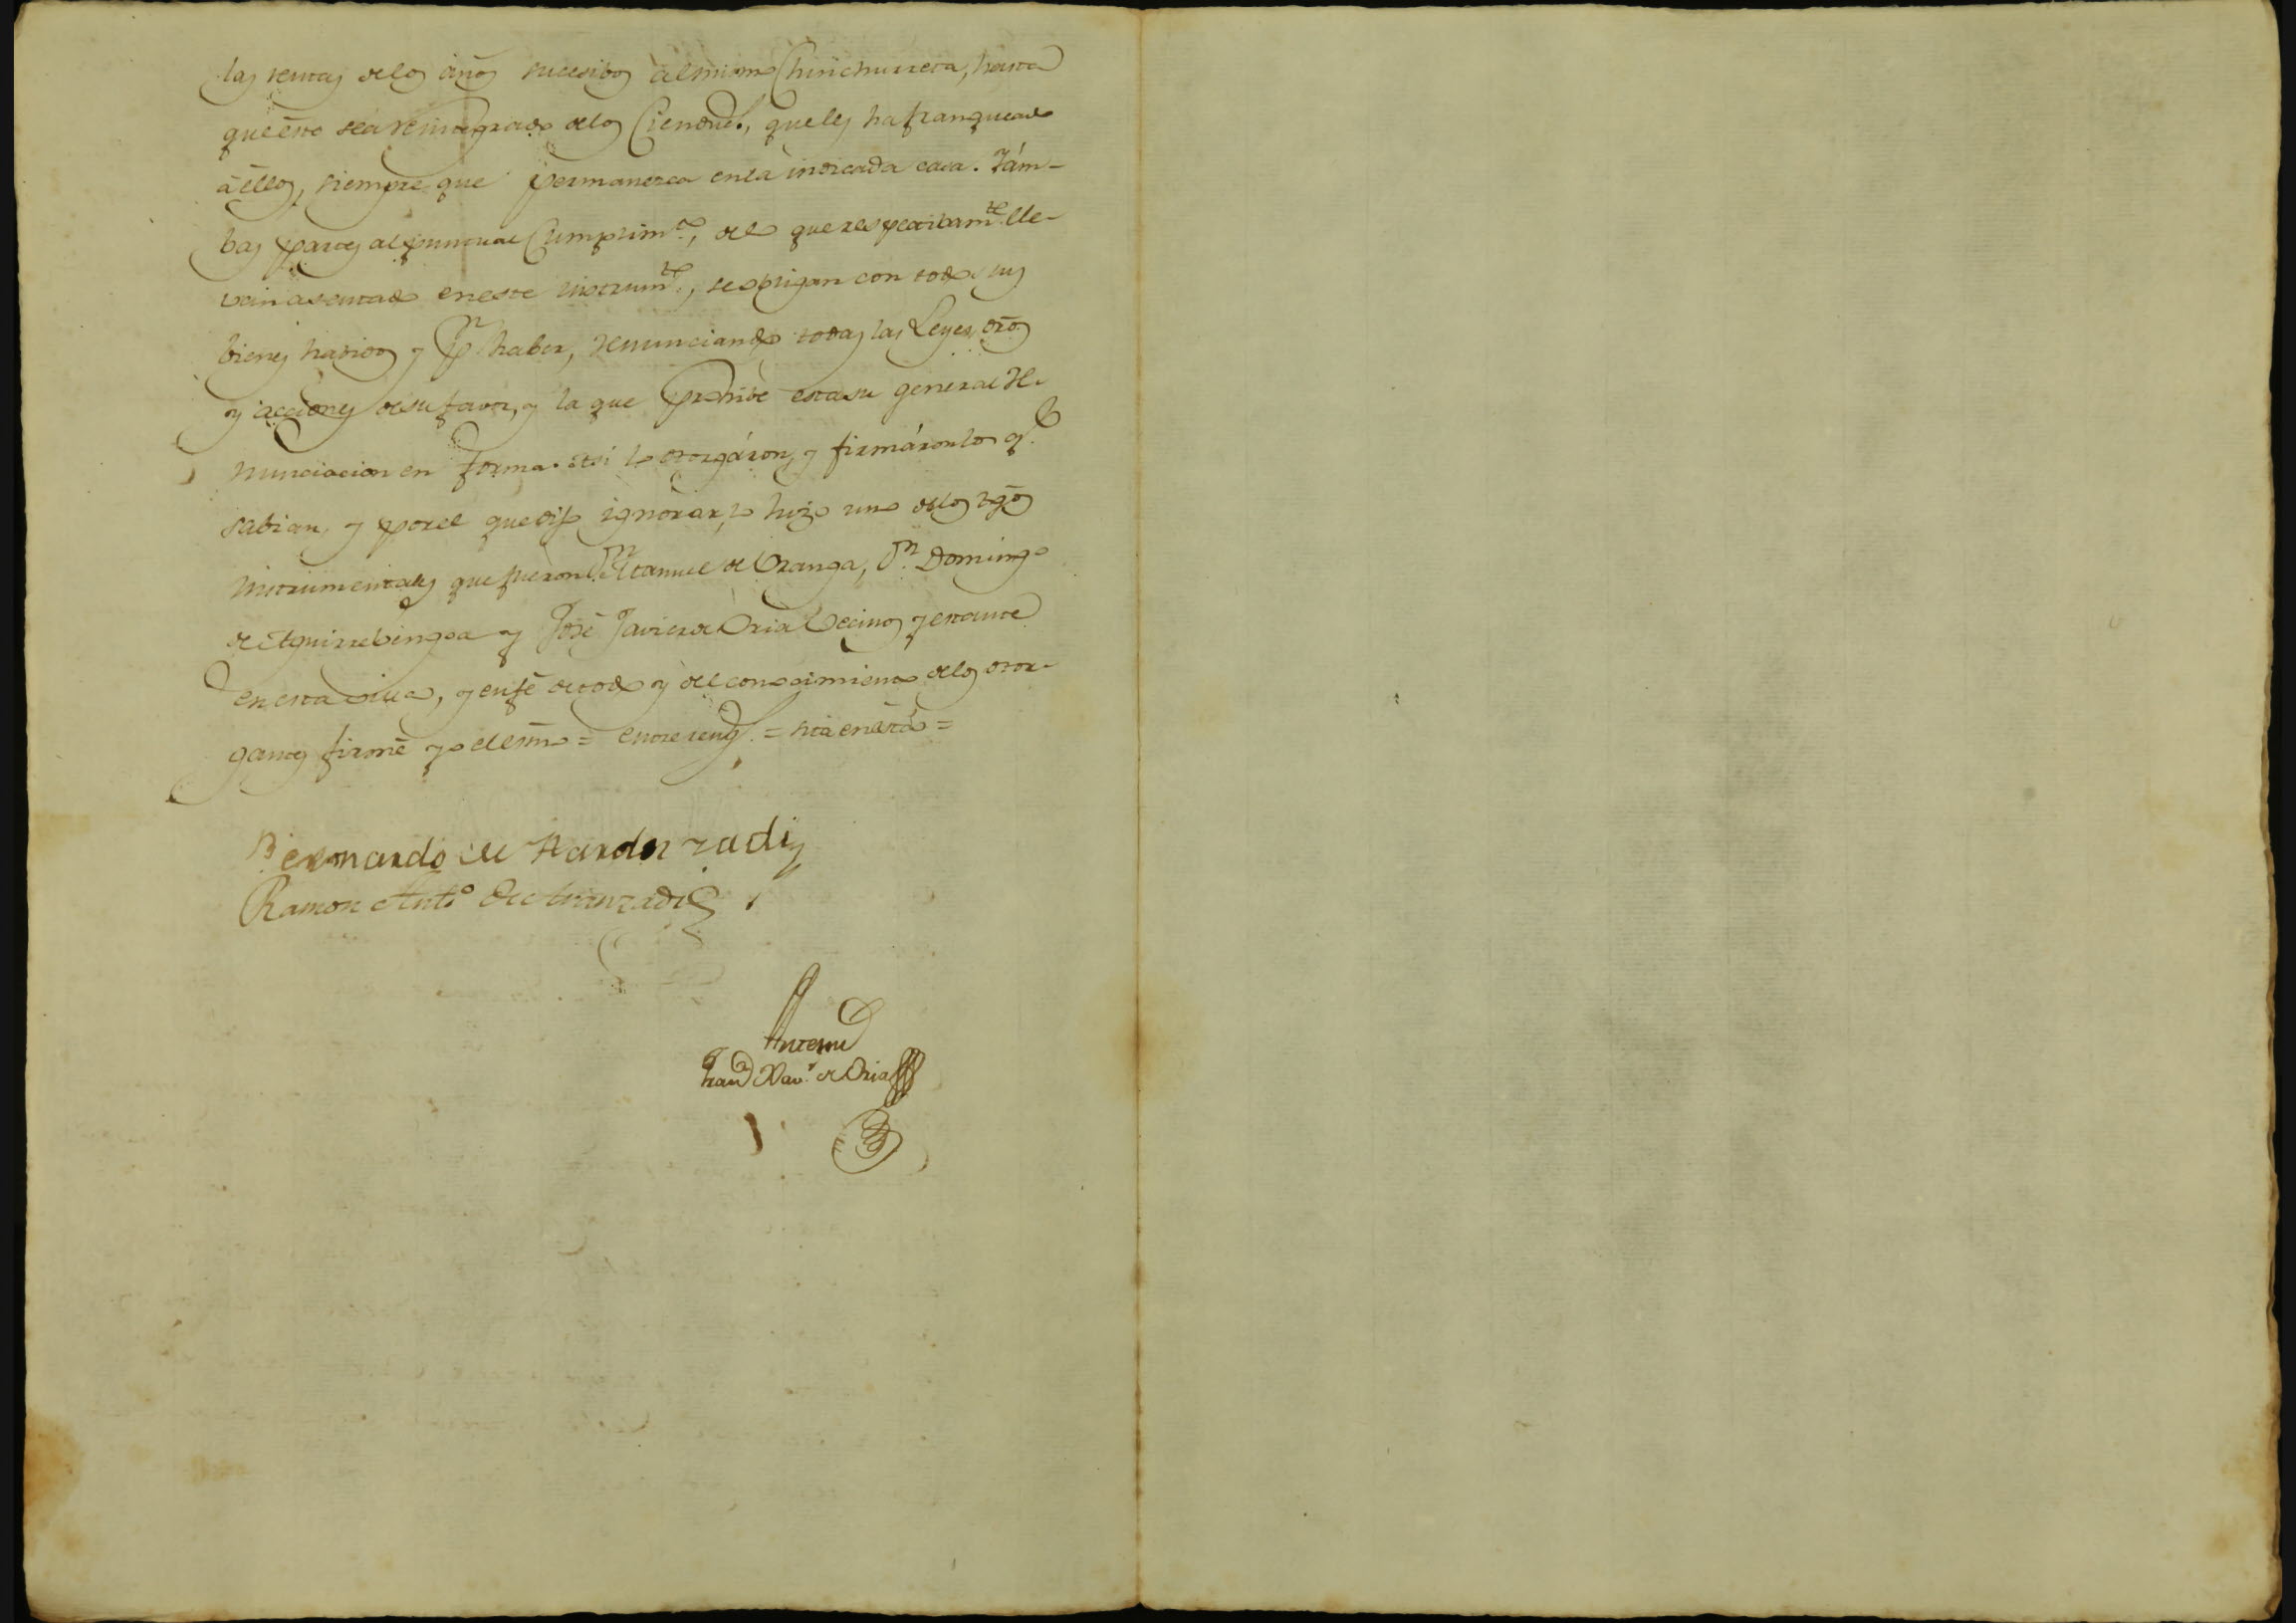 las rentas de los años sucesibos al mismo Chinchurreta, hasta
que éste sea reintegrado de los Cien duc.s, que les ha franqueado
à ellos, siempre que permanezca en la indicada casa. Yám-
bas partes al puntual Cumplim.to, de lo que respectibam.te lle-
van asentado en este instrum.to, se obligan con todos sus
bienes havidos y p.r haber, renunciando todas las Leyes, dros
y acciones de su favor, y la que prohibe esta su general re-
nunciacion en forma. Asi lo otorgáron, y firmáron los q.e
sabian, y por el que dijo ignorar, lo hizo uno de los tgos
instrumentales que fueron D.n Manuel de Oranga, D.n Domingo
de Aguirrebengoa y José Javier de Oria Vecinos y estante
en esta villa, y en fé de todo y del conocimiento de los otor-
gantes firmé yo el essno = entre reng.s =
Bernardo de
Ramon Ant.o de Aranzadi
Antemi
Xav.r de Oria